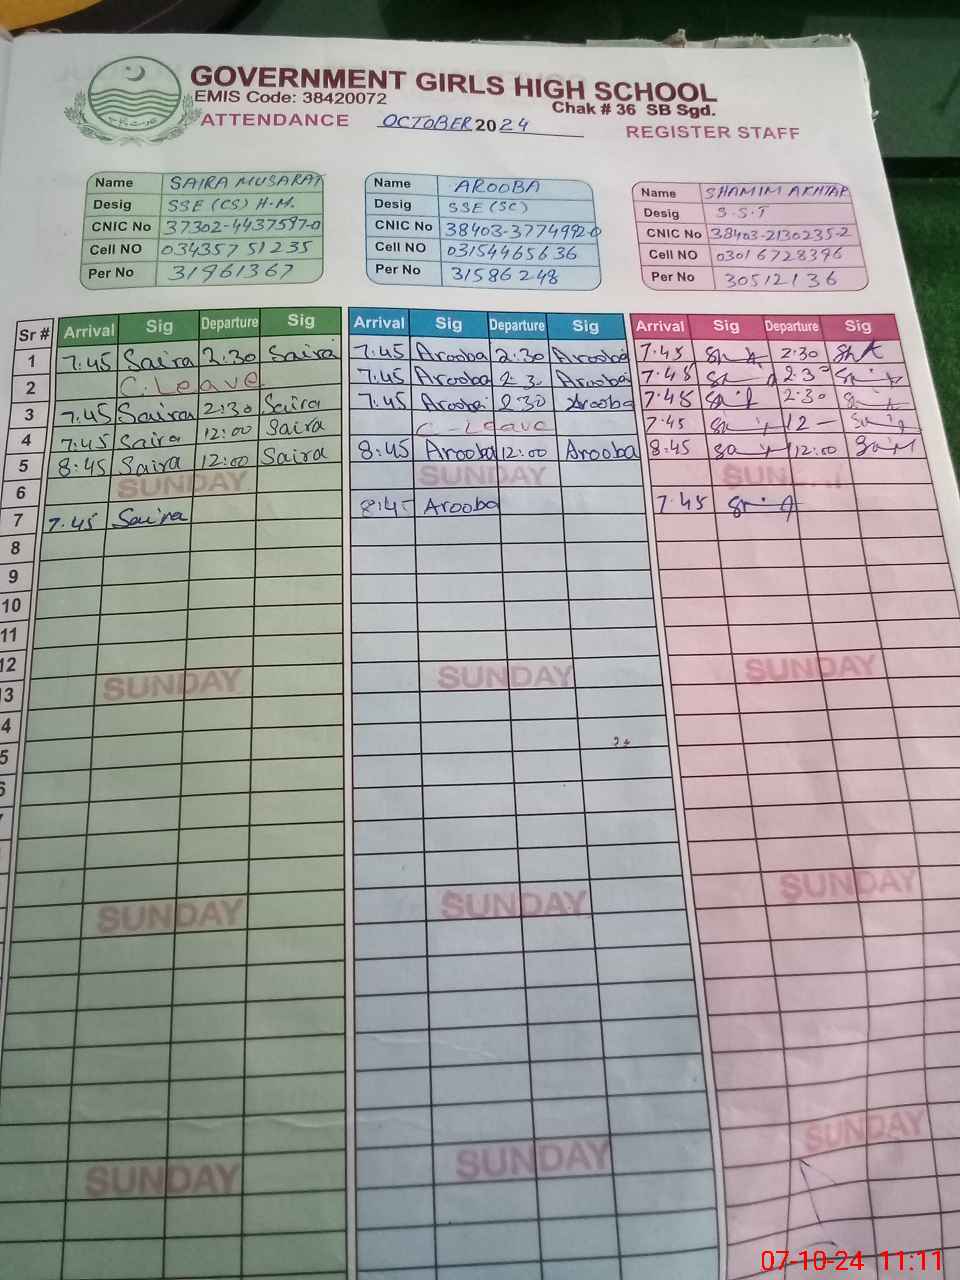 GOVERNMENT GIRLS HIGH SCHOOL
EMIS Code: 38420072
Chak # 36 SB Sgd.
ATTENDANCE OCTOBER 2024 REGISTER STAFF
Name SAIRA MUSARAT
Desig SSE (CS) H.M.
CNIC No 37302-4437597-0
Cell NO 03435751235
Per No 31961367
Name AROOBA
Desig SSE (SC)
CNIC No 38403-3774992-0
Cell NO 03154465636
Per No 31586248
Name SHAMIM AKHTAR
Desig S.S.T
CNIC No 38403-2130235-2
Cell NO 03016728396
Per No 30512136
Sr # Arrival Sig Departure Sig Arrival Sig Departure Sig Arrival Sig Departure Sig
1 7.45 Saira 2.30 Saira 7.45 Arooba 2.30 Arooba 7.45 2.30
2 C.Leave 7.45 Arooba 2.30 Arooba 7.45 2.30
3 7.45 Saira 2:30 Saira 7.45 Arooba 2.30 Arooba 7.45 2.30
4 7.45 Saira 12:00 Saira C-Leave 7.45 12 -
5 8:45 Saira 12:00 Saira 8:45 Arooba 12:00 Arooba 8:45 12:00
6 SUNDAY SUNDAY SUNDAY
7 7.45 Saira Arooba 7.45
8
9
10
11
12
13 SUNDAY SUNDAY SUNDAY
4
5
6
SUNDAY SUNDAY SUNDAY
SUNDAY SUNDAY SUNDAY
07-10-24 11:11